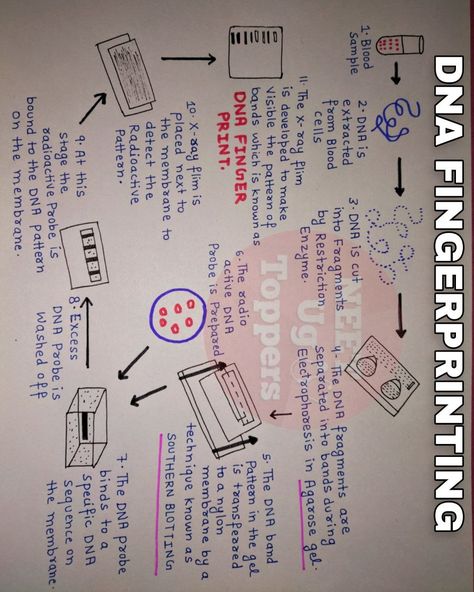 DNA FINGERPRINTING
1. Blood
sample
2. DNA is
extracted
from Blood
cells
3. DNA is cut
into Fragments
by Restriction
Enzyme.
4. The DNA fragments are
separated into bands during
Electrophoresis in Agarose gel.
5. The DNA band
Pattern in the gel
is transferred
to a nylon
membrane by a
technique known as
SOUTHERN BLOTTING
6. The radio
active DNA
Probe is Prepared
7. The DNA probe
binds to a
specific DNA
sequence on
the membrane.
8. Excess
DNA Probe is
Washed off
9. At this
stage the
radioactive Probe is
bound to the DNA pattern
on the membrane.
10. X-ray flim is
placed next to
the membrane to
detect the
Radioactive
Pattern.
11. The x-ray flim
is developed to make
visible the pattern of
bands which is known as
DNA FINGER
PRINT.
NEET
Ug
Toppers